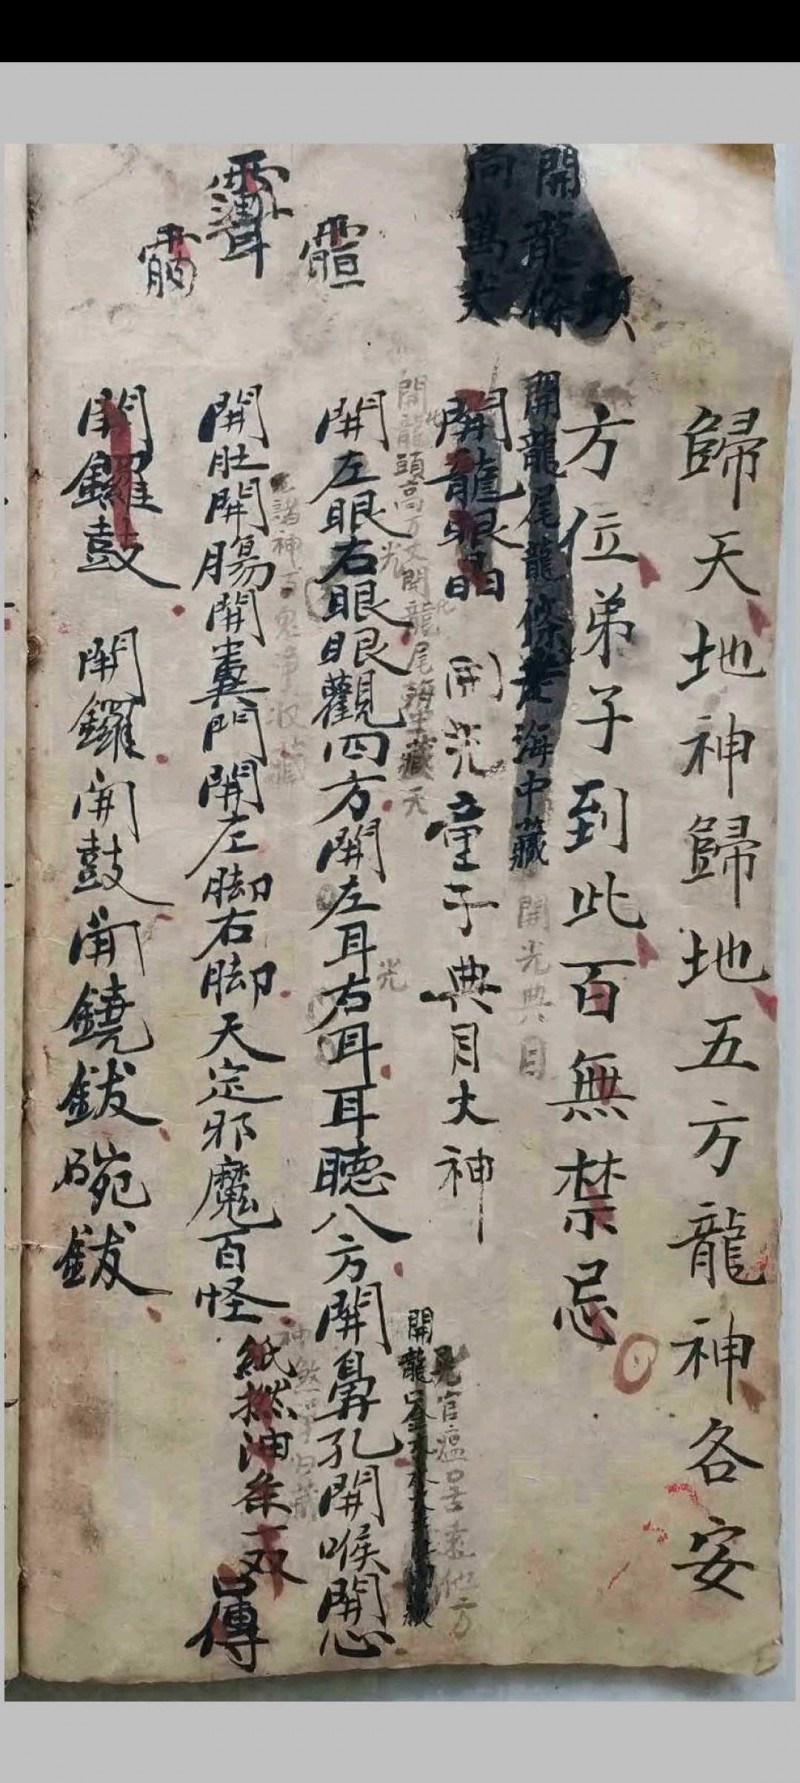 歸天地神歸地五方龍神各安
方位弟子到此百無禁忌
開龍條頭
向萬丈
開龍尾龍條是海中藏
開光典目
開龍眼晶
開光童子典目大神
開龍頭高万丈開龍尾海中藏天
開龍口金
見官瘟 遠他方
開左眼右眼眼觀四方開左耳右耳耳聽八方開鼻孔開喉開心
光
光
諸神百鬼 收藏
開肚開腸開糞門開左脚右脚天定邪魔百怪
神煞
紙撚油条一双
傳
開鑼鼓 開鑼開鼓開鐃鈸碗鈸